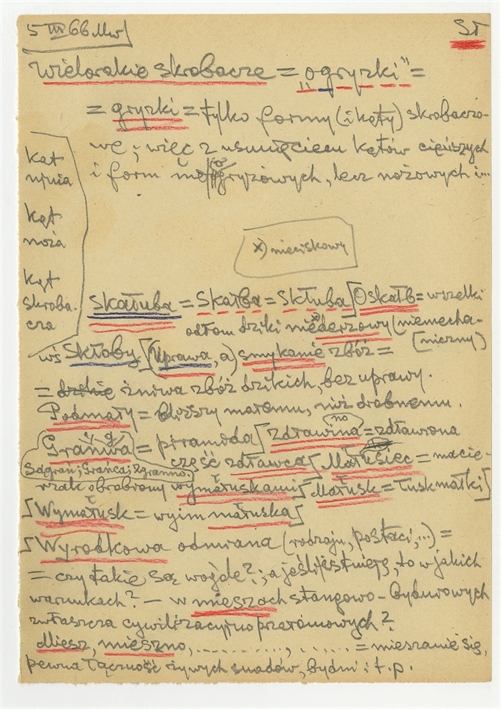 5 III 66 Mw
ST
Wielorakie skrobacze = „ogryzki” =
= gryzki = tylko formy (i kąty) skrobaczo-
we; więc z usunięciem kątów cięższych
i form gryzowych, lecz nożowych i...
kąt
kąt
noża
kąt
skroba-
cza
x) nieciskowy
Skałuba = Skałba = Skłuba [Oskałb = wszelki
odłam dziki niederzowy (niemecha-
niczny)
Skłoby [Uprawa, a) smykanie zbóż =
= żniwa zbóż dzikich, bez uprawy.
Podmały = bliższy małemu, niż drobnemu.
Graniwa = piramoda [zdrawina = zdławiona
część zdławca [Matusiec = macie-
rzak obrobiony wymatuskami [Matusk = Łuskmatki]
[Wymatusk = wyim matuska]
[Wyrodkowa odmiana (rodzaju, postaci,...) =
= czy takie są wogóle?; a jeśli istnieją, to w jakich
warunkach? — w mieszach stangowo-byturowych
zwłaszcza cywilizacyjno przełomowych?
Miesz, mieszno, .......... = mieszanie się,
pewna łączność żywych snadów, bydni i t.p.